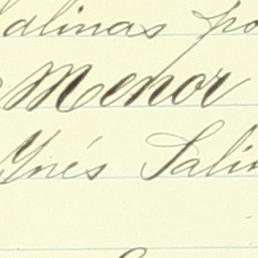 Salinas po
Menor
Ynés Salin